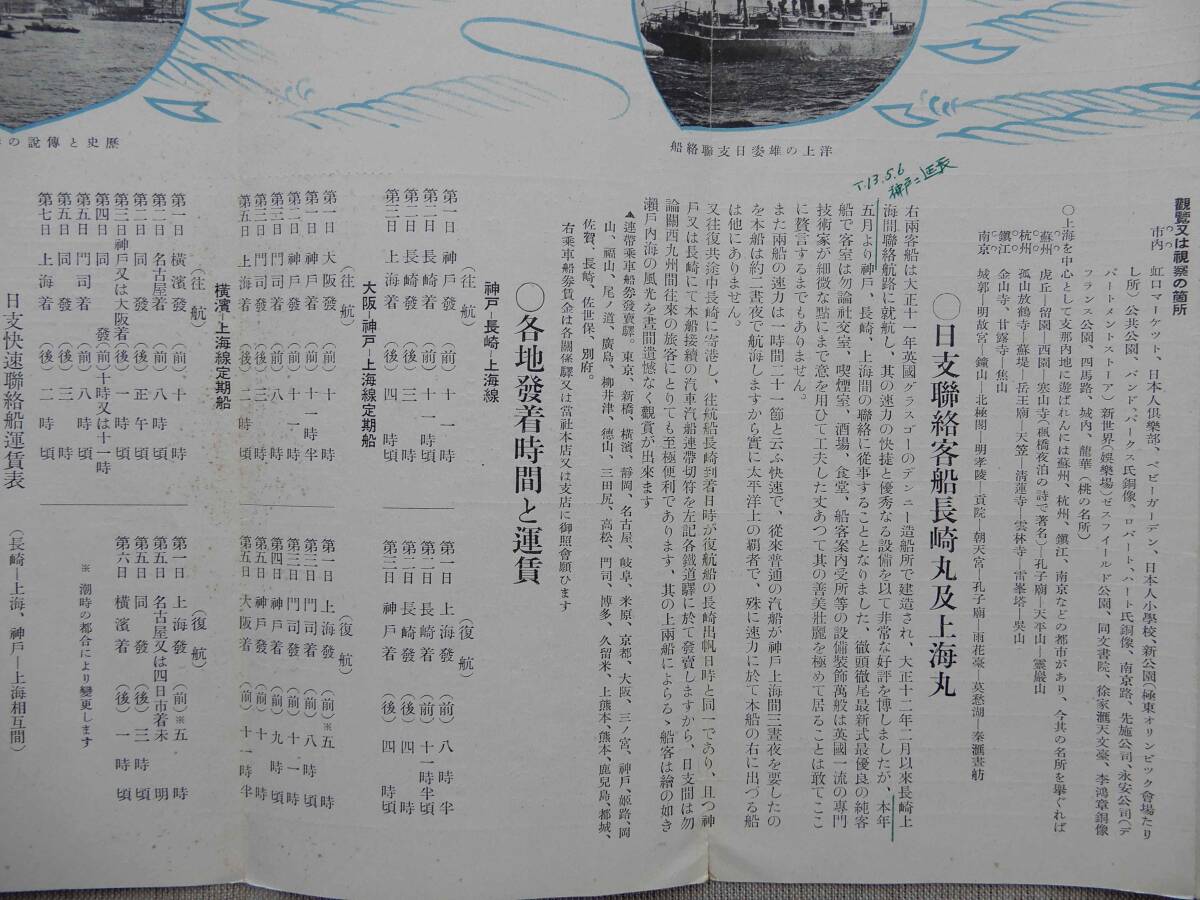 船絡聯支日姿雄の上洋
歴史と傳説の
T.13.5.6
神戸ニ延長
觀覽又は視察の箇所
市内　虹口マーケット、日本人倶樂部、ベビーガーデン、日本人小學校、新公園(極東オリンピック會場たり
し所)公共公園、バンド、パークス氏銅像、ロバート、ハート氏銅像、南京路、先施公司、永安公司(デ
パートメントストーア)新世界(娯樂場)ゼスフイールド公園、同文書院、徐家滙天文臺、李鴻章銅像
フランス公園、四馬路、城内、龍華(桃の名所)
〇上海を中心として支那内地に遊ばれんには蘇州、杭州、鎭江、南京などの都市があり、今其の名所を擧ぐれば
蘇州　虎丘―留園―西園―寒山寺(楓橋夜泊の詩で著名)―孔子廟―天平山―靈巖山
杭州　孤山放鶴寺―蘇堤―岳王廟―天竺―清蓮寺―雲林寺―雷峯塔―吳山
鎭江　金山寺、甘露寺、焦山
南京　城郭―明故宮―鐘山―北極閣―明孝陵―貢院―朝天宮―孔子廟―雨花臺―莫愁湖―秦滙畫舫
〇日支聯絡客船長崎丸及上海丸
右兩客船は大正十一年英國グラスゴーのデンニー造船所で建造され、大正十二年二月以來長崎上
海間聯絡航路に就航し、其の速力の快捷と優秀なる設備を以て非常な好評を博しましたが、本年
五月より神戸、長崎、上海間の聯絡に從事することとなりました、徹頭徹尾最新式最優良の純客
船で客室は勿論社交室、喫煙室、酒場、食堂、船客案内受所等の設備裝飾萬般は英國一流の專門
技術家が細微な點にまで意を用ひて工夫した丈あつて其の善美壯麗を極めて居ることは敢てここ
に贅言するまでもありません。
また兩船の速力は一時間二十一節と云ふ快速で、從來普通の汽船が神戸上海間三晝夜を要したの
を本船は約二晝夜で航海しますから實に太平洋上の覇者で、殊に速力に於て本船の右に出づる船
は他にありません。
又往復共途中長崎に寄港し、往航船長崎到着日時が復航船の長崎出帆日時と同一であり、且つ神
戸又は長崎にて本船接續の汽車汽船連帶切符を左記各鐵道驛に於て發賣しますから、日支間は勿
論關西九州間往來の旅客にとりても至極便利であります、其の上兩船によらるゝ船客は繪の如き
瀬戸内海の風光を晝間遺憾なく觀賞が出來ます
▲連帶乘車船券發賣驛。東京、新橋、横濱、靜岡、名古屋、岐阜、米原、京都、大阪、三ノ宮、神戸、姫路、岡
山、福山、尾ノ道、廣島、柳井津、德山、三田尻、高松、門司、博多、久留米、上熊本、熊本、鹿兒島、都城、
佐賀、長崎、佐世保、別府。
右乘車船券賃金は各關係驛又は當社本店又は支店に御照會願ひます
〇各地發着時間と運賃
神戸―長崎―上海線
(往航)
第一日　神戸發　(前)十一時
第二日　長崎着　(前)十時
第二日　長崎發　(後)一時
第三日　上海着　(後)四時
(復航)
第一日　上海發　(前)八時半
第二日　長崎着　(前)十一時半頃
第二日　長崎發　(後)四時
第三日　神戸着　(後)四時
大阪―神戸―上海線定期船
(往航)
第一日　大阪發　(前)十時
第一日　神戸着　(前)十一時半
第二日　神戸發　(前)十時
第三日　門司着　(前)八時
第三日　門司發　(後)二時
第五日　上海着　(後)二時頃
(復航)
第一日　上海發　(前)※五時
第三日　門司着　(前)八時頃
第三日　門司發　(前)十一時
第四日　神戸着　(前)九時頃
第五日　神戸發　(前)十時
第五日　大阪着　(前)十一時半
横濱―上海線定期船
(往航)
第一日　横濱發　(前)十時
第二日　名古屋着　(前)八時
第二日　同發　(後)正午
第三日　神戸又は大阪着(後)一時頃
第四日　同發　(前)十時又は十一時
第五日　門司着　(前)八時頃
第五日　同發　(後)三時
第七日　上海着　(後)二時頃
(復航)
第一日　上海發　(前)※五時
第五日　名古屋又は四日市着未明
第五日　同發　(後)三時頃
第六日　横濱着　(後)一時頃
※　潮時の都合により變更します
日支快速聯絡船運賃表
(長崎―上海、神戸―上海相互間)